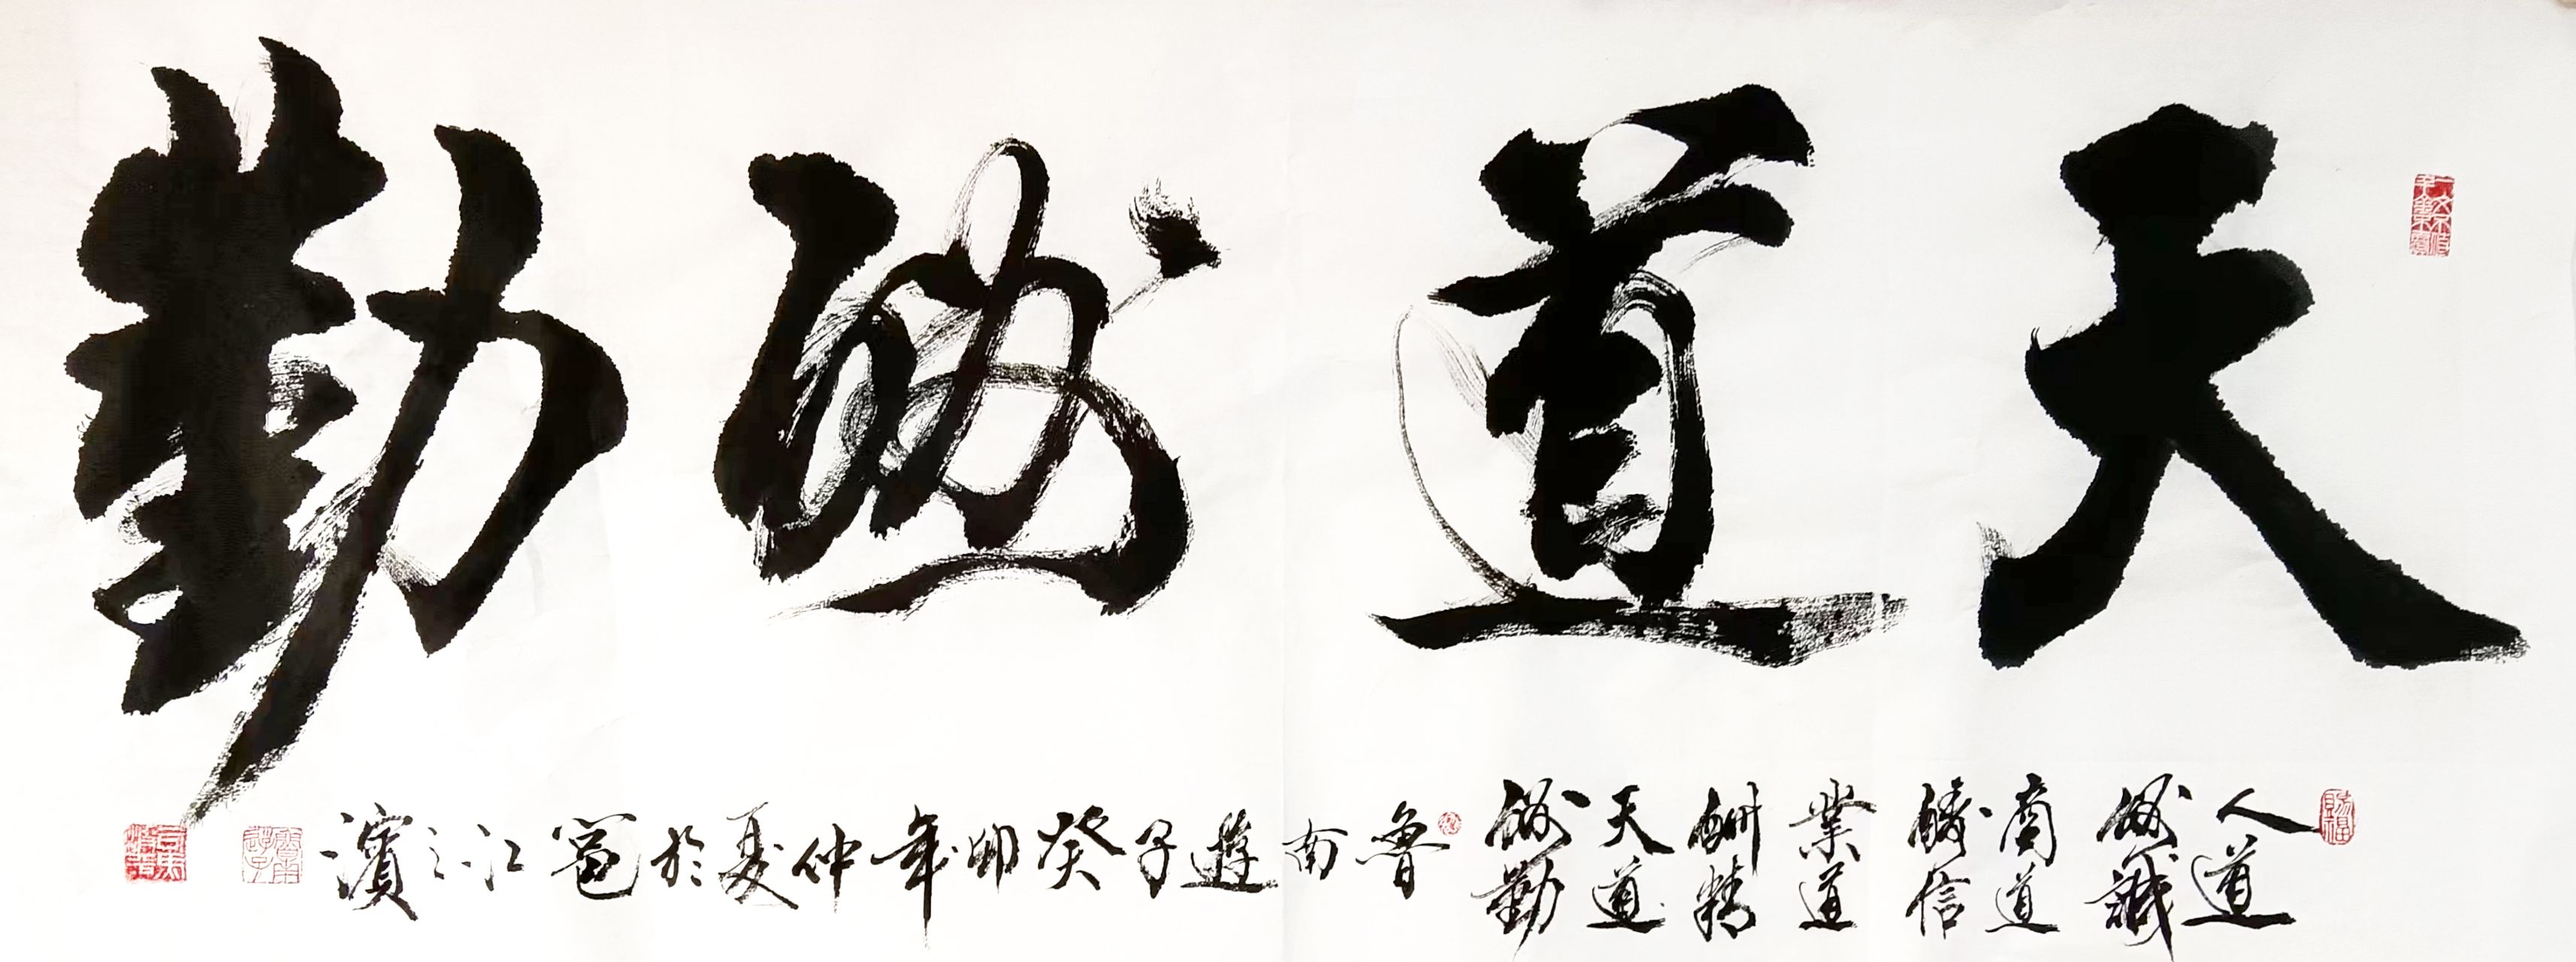 天道酬勤
人道
酬誠
商道
酬信
業道
酬精
天道
酬勤
魯南遊子癸卯年仲夏於邕江之濱